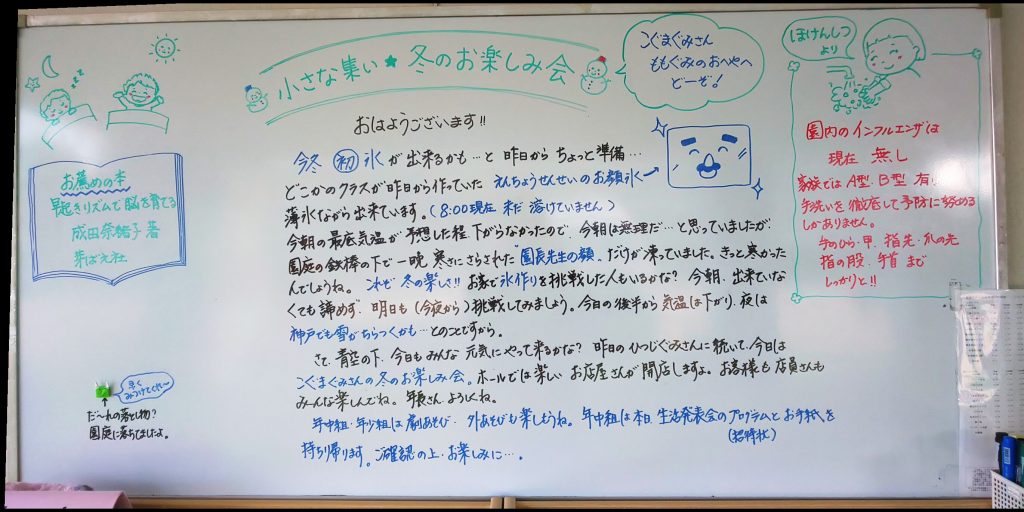 小さな集い★冬のお楽しみ会
こぐまぐみさん
ももぐみのおへやへ
どーぞ！
ほけんしつ
より
おはようございます!!
今冬 初 氷が出来るかも…と 昨日から ちょっと準備…
どこかのクラスが昨日から作っていた えんちょうせんせいのお顔氷
薄氷ながら出来ています。(8:00現在 未だ 溶けていません)
今朝の最底気温が 予想した程、下がらなかったので、今朝は無理だ…と思っていましたが、
園庭の鉄棒の下で一晩 寒さにさらされた"園長先生の顔"だけが凍っていました。きっと寒かった
んでしょうね。これぞ 冬の楽しさ!! お家で氷作りを挑戦した人もいるかな? 今朝、出来ていな
くても諦めず、明日も(今夜から)挑戦してみましょう。今日の後半から気温は下がり、夜は
神戸でも雪がちらつくかも…とのことですから。
さて、青空の下、今日もみんな 元気にやって来るかな? 昨日のひつじぐみさんに続いて、今日は
こぐまぐみさんの冬のお楽しみ会。ホールでは楽しい お店屋さんが開店しますよ。お客様も店員さんも
みーんな楽しんでね。年長さん、よろしくね。
年中組・年少組は劇あそび・外あそびも楽しもうね。年中組は本日、生活発表会のプログラムとお手紙を
(招待状)
持ち帰ります。ご確認の上・お楽しみに…。
お薦めの本
早起きリズムで脳を育てる
成田奈緒子 著
芽ばえ社
早く
みつけてくだ〜い
だ〜れの落とし物?
園庭に落ちてましたよ。
園内のインフルエンザは
現在 無し
家族では A型・B型 有
手洗いを徹底して予防に努める
しかありません。
手のひら・甲・指先・爪の先
指の股・手首まで
しっかりと!!